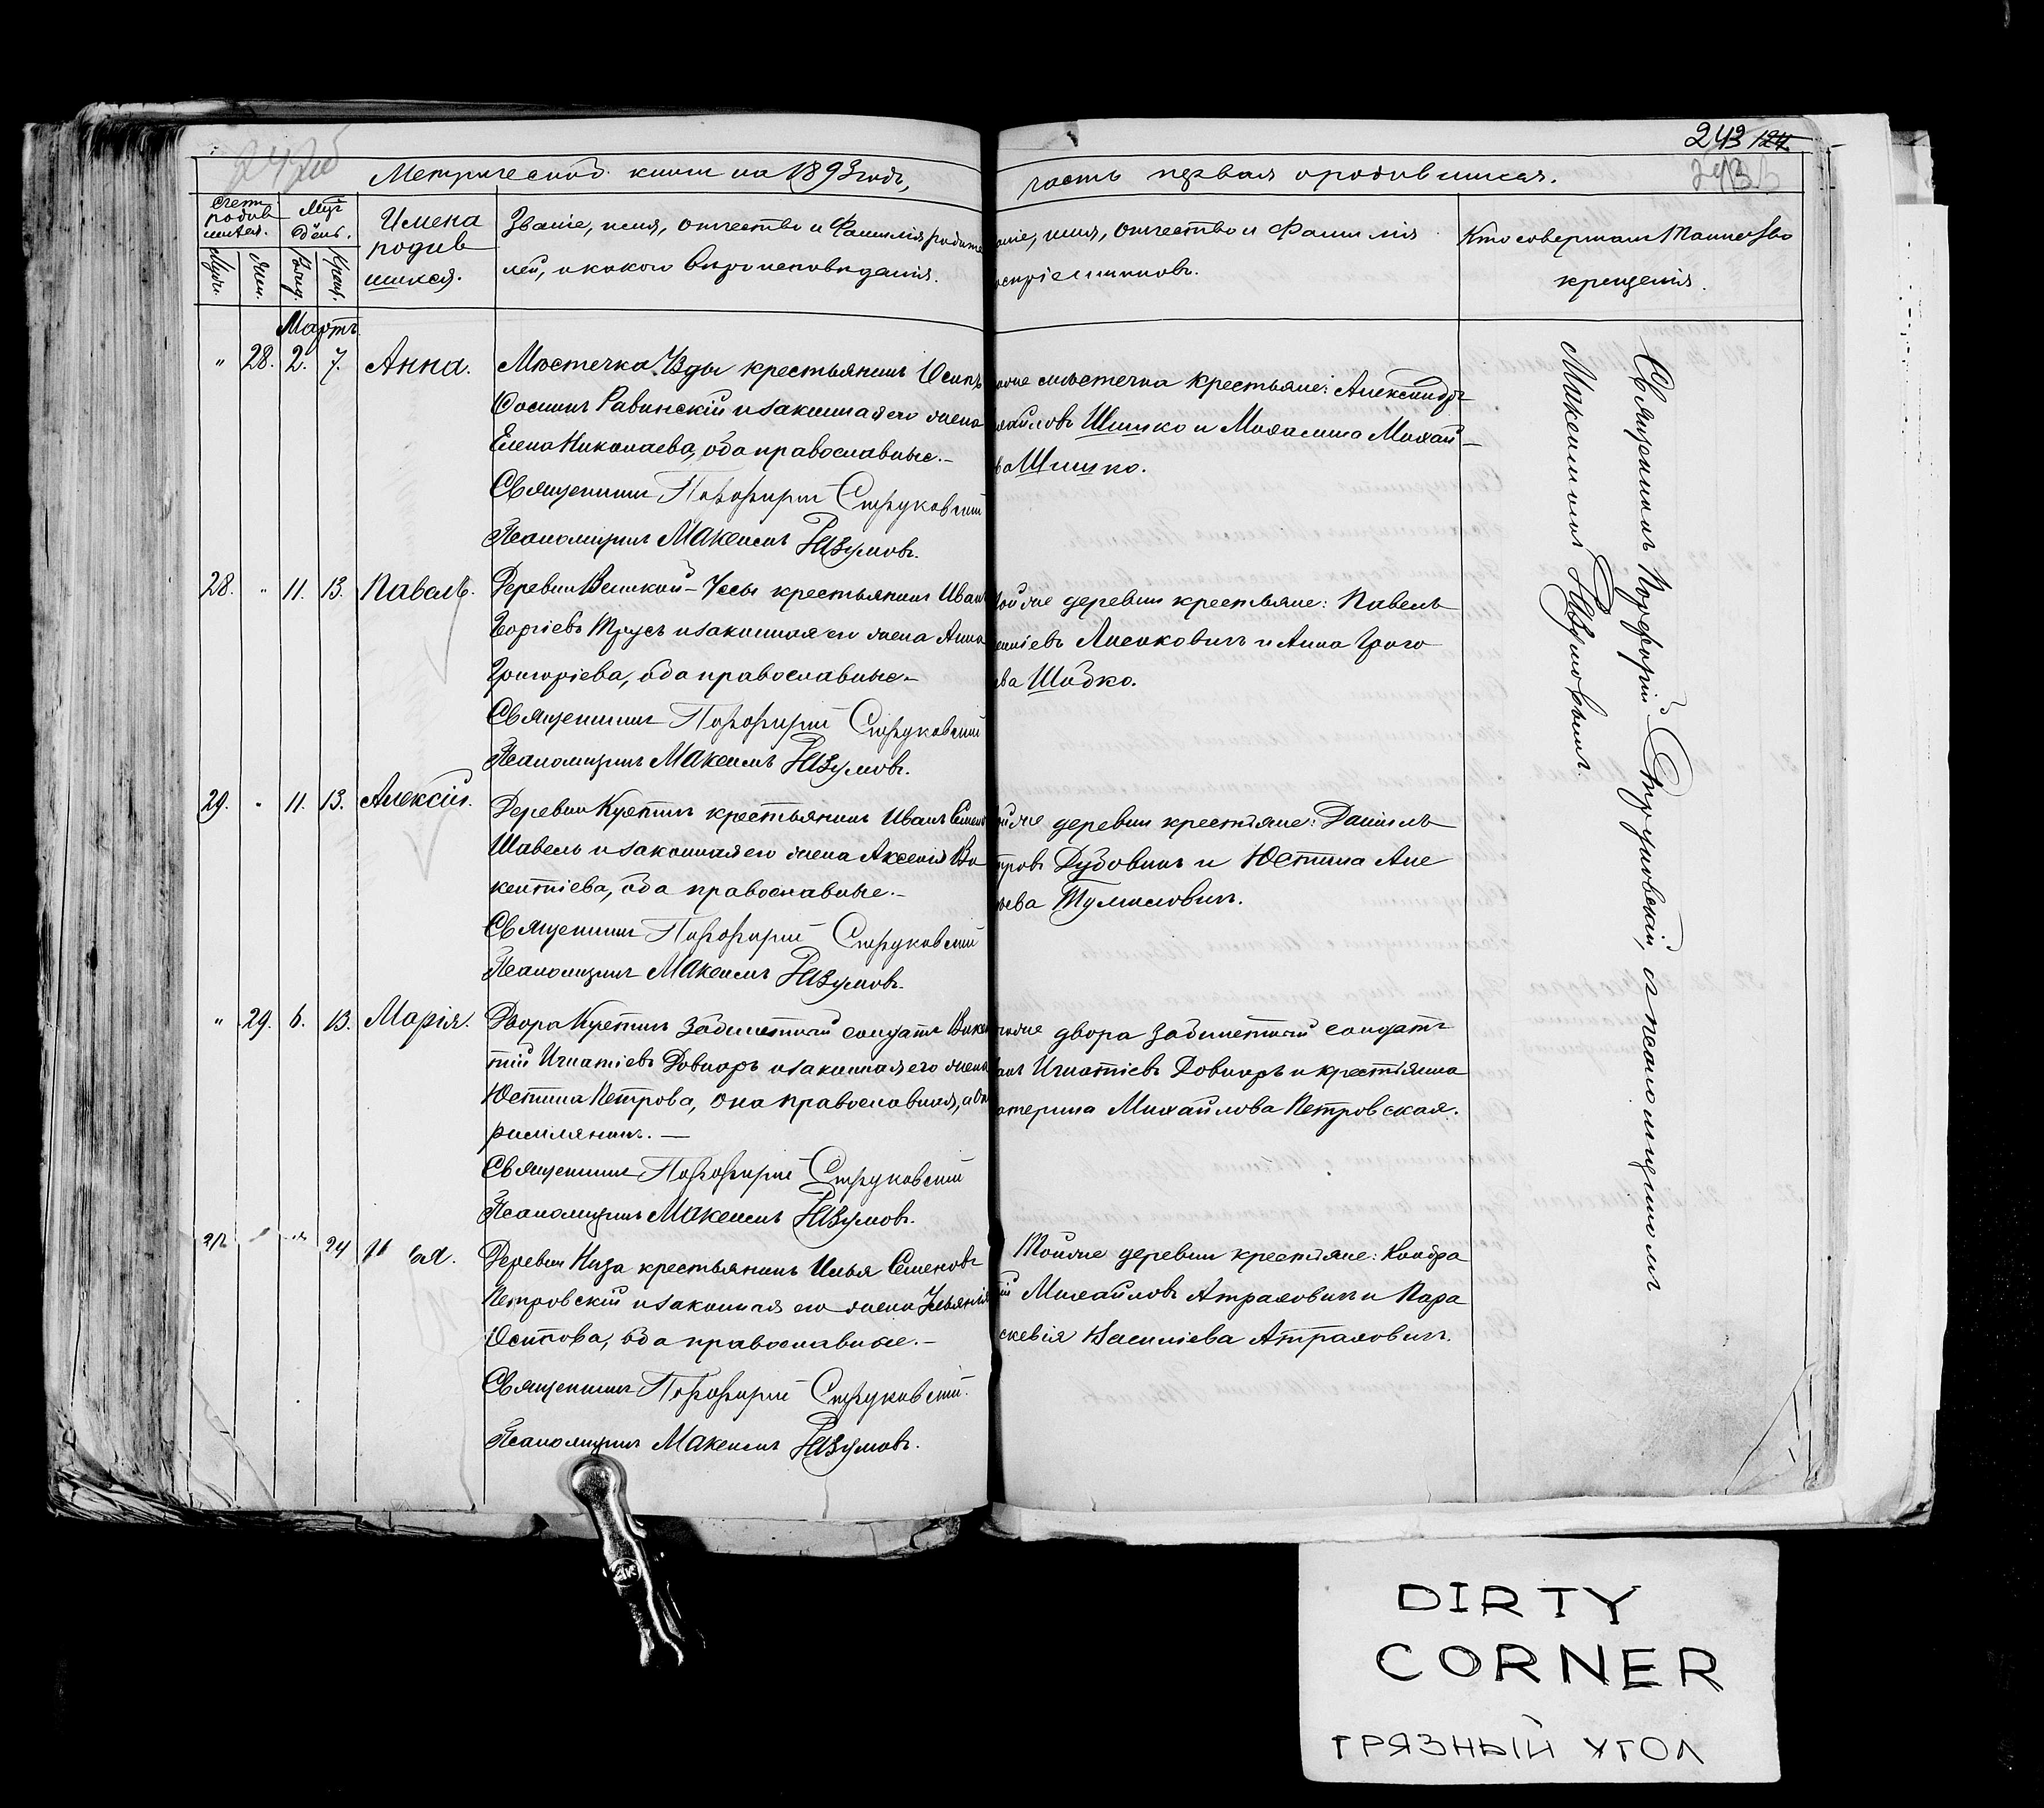 243 124
242об
243
Метрической книги на 1893 годъ,
часть первая о родившихся.
Счетъ родившихся.
Мѣс. День.
Муж.
Жен.
Рожд.
Крещ.
Имена родившихся.
Званіе, имя, отчество и фамилія родите
лей, и какого вѣроисповѣданія.
аніе, имя, отчество и фамилія
оспріемниковъ.
Кто совершалъ таинство
крещенія.
Мартъ.
" 28. 2. 7. Анна.
Мѣстечка Узды крестьянинъ Осипъ
Равинскій и законная его жена
Елена Николаева, оба православные.-
Священникъ Порфирій Струковскій
Псаломщикъ Максимъ Разумовъ.
мѣстечка крестьяне: Александръ
хайловъ Шишко и Михай-
ва Шишко.
28. " 11. 13. Павелъ.
Деревни Великой-Усы крестьянинъ Иванъ
Георгіевъ Трусъ и законная его жена Анна
Григоріева, оба православные.-
Священникъ Порфирій Струковскій
Псаломщикъ Максимъ Разумовъ.
ойже деревни крестьяне: Павелъ
и Анна Григо
ева Шидко.
29. " 11. 13. Алексій.
Деревни Кухтичъ крестьянинъ Иванъ Семен
Шавель и законная его жена Аксенія Ви
кентіева, оба православные.-
Священникъ Порфирій Струковскій
Псаломщикъ Максимъ Разумовъ.
ойже деревни крестьяне: Даніилъ
тровъ Дубовикъ и Юстина Але
ева Тумиловичъ.
" 29. 6. 13. Марія.
Двора Кухтичъ забилетный солдатъ Викен
тій Игнатіевъ Довнаръ и законная его жена
Юстина Петрова, она православная, а он
римлянинъ.-
Священникъ Порфирій Струковскій
Псаломщикъ Максимъ Разумовъ.
гоже двора забилетный солдатъ
Игнатіевъ Довнаръ и крестьянка
атерина Михайлова Петровская.
24
Деревни Низа крестьянинъ Илья Семеновъ
Петровскій и законная его жена Ульянія
Осипова, оба православные.-
Священникъ Порфирій Струковскій.
Псаломщикъ Максимъ Разумовъ.
Тойже деревни крестьяне: Кондра
ій Михайловъ Атраховичъ и Пара
скевія Василіева Атраховичъ.
Священникъ Порфирій Струковскій, съ псаломщикомъ
Максимомъ Разумовымъ.
DIRTY
CORNER
ГРЯЗНЫЙ УГОЛ